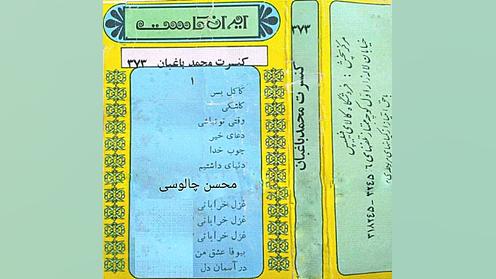 ایران گاست
کنسرت محمد باغبان ۳۷۳
۱
کاکل بسن
کاشکی
وقتی تو نباشی
دعای خیر
چوب خدا
دنیای داشتیم
محسن چالوسی
غزل خراباتی
غزل خراباتی
غزل خراباتی
بیوفا عشق من
در آسمان دل
۳۷۳
کنسرت محمد باغبان
مرکز پخش: فروشگاه کالای نفیس
خیابان لاله‌زار اول کوچه
۳۱۸۲۴۵ - ۳۲۴۵